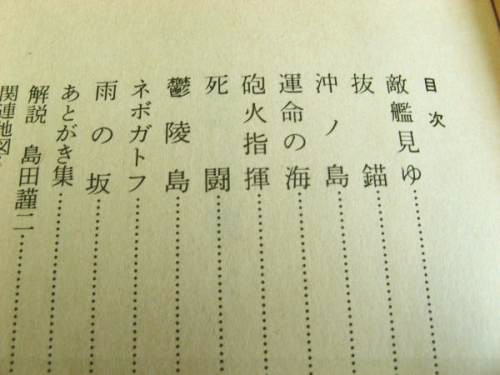 目次
敵艦見ゆ
抜錨
沖ノ島
運命の海
砲火指揮
死闘
鬱陵島
ネボガトフ
雨の坂
あとがき集
解説 島田謹二
関連地図